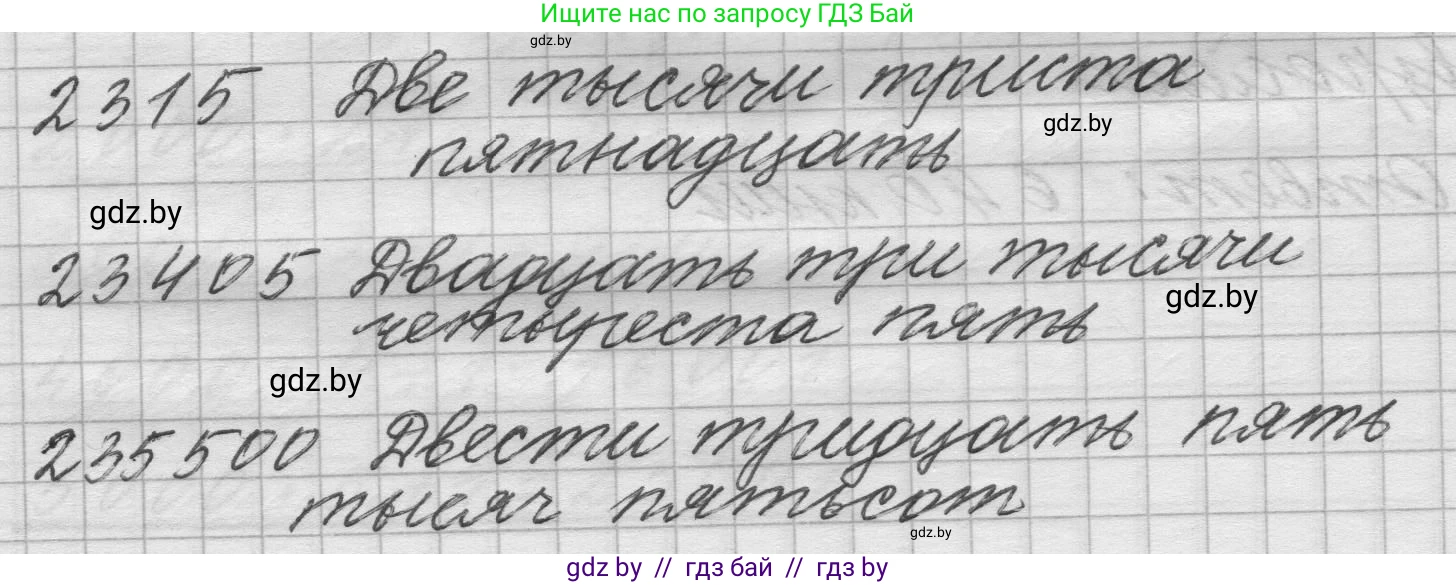 Ищите нас по запросу ГДЗ Бай
gdz.by
2315 Две тысячи триста
gdz.by
пятнадцать
gdz.by
23405 Двадцать три тысячи
gdz.by
четыреста пять
gdz.by
235500 Двести тридцать пять
тысяч пятьсот
gdz.by
gdz by // гдз бай // гдз by